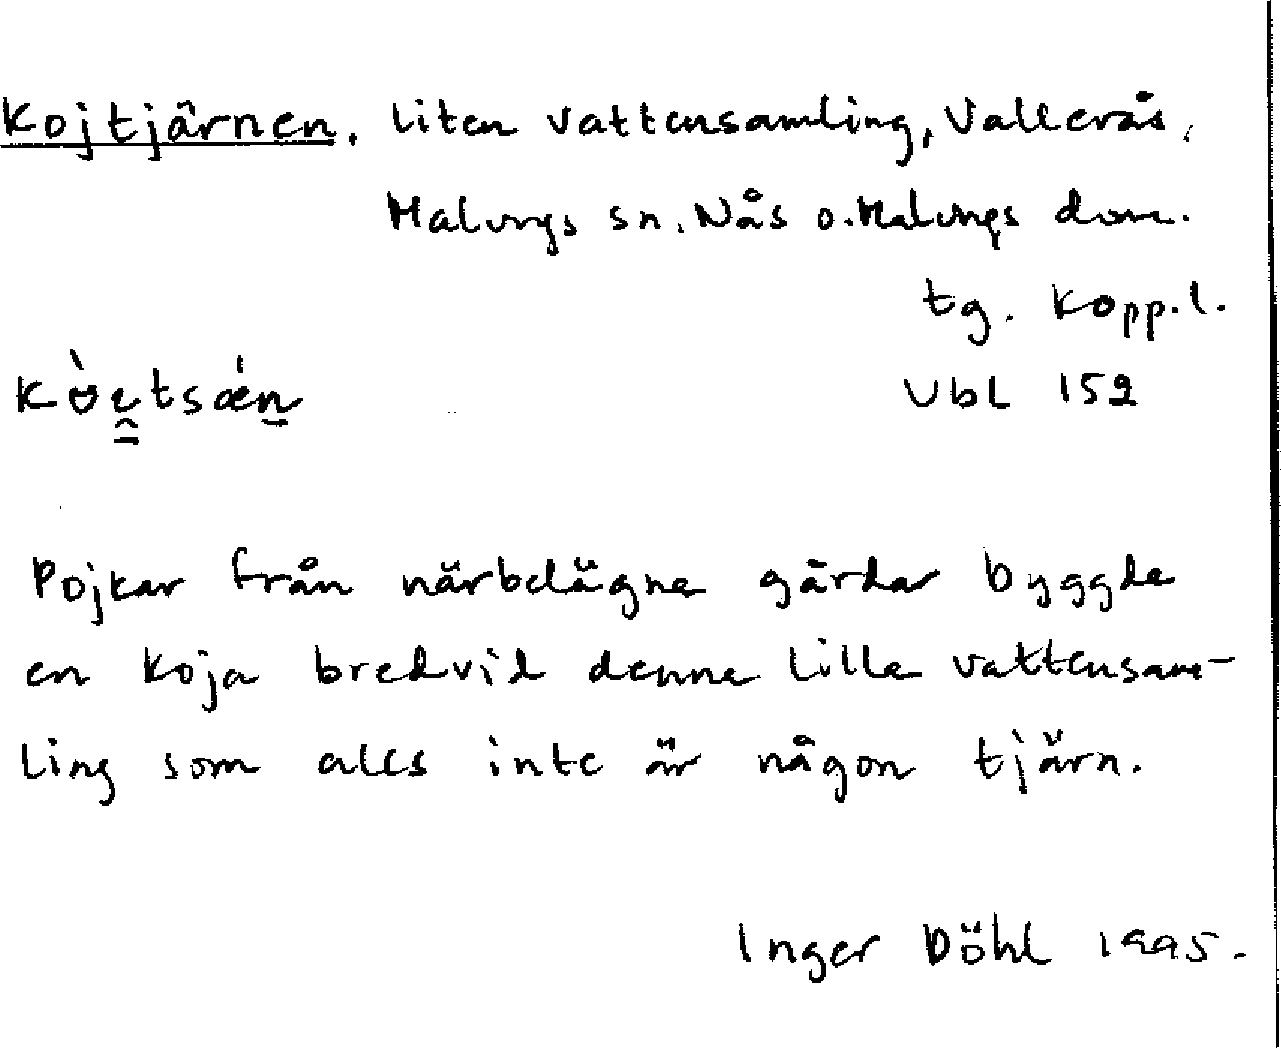 Kojtjärnen, liten vattensamling, Vallerås,
Malungs sn. Nås o. Malungs dom.
tg. Kopp.l.
Ubl 152
Pojkar från närbelägna gårdar byggde
en koja bredvid denna lilla vattensam-
ling som alls inte är någon tjärn.
Inger Döhl 1995.